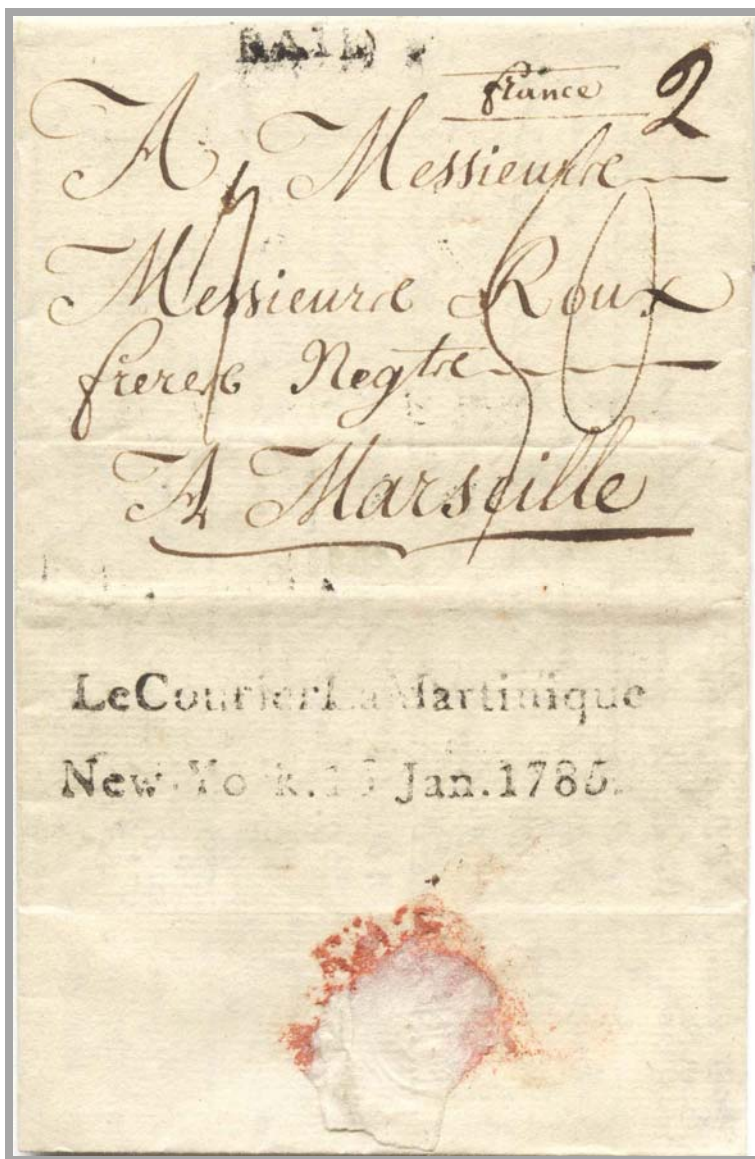 PAID
france 2
A Messieurs
Messieurs Roux
freres Negts
A Marseille
LeCourierLaMartinique
New-York. Jan.1785.